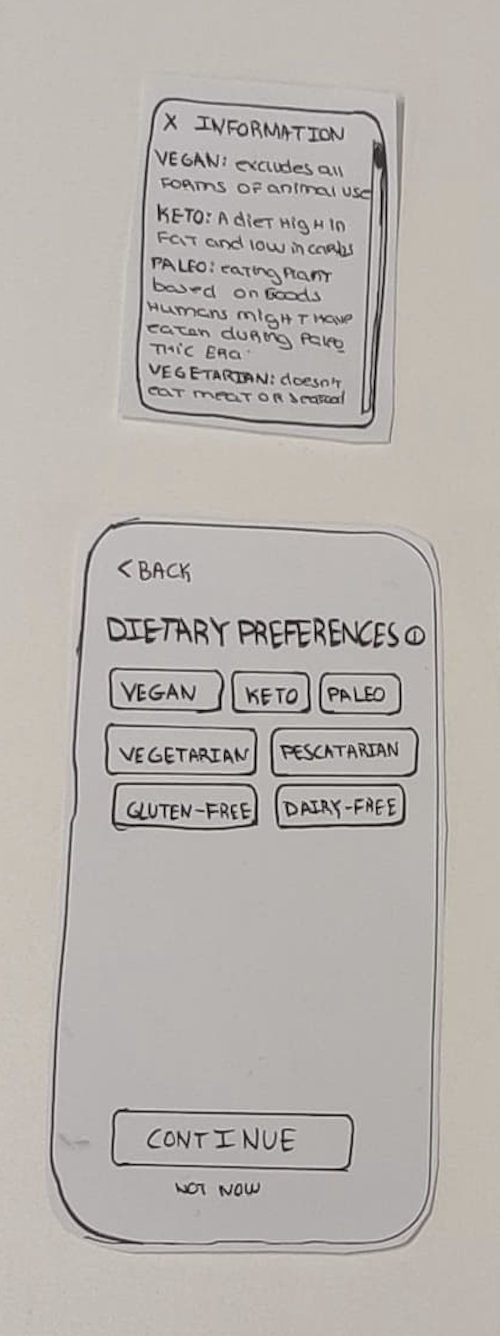 X INFORMATION
VEGAN: excludes all
FORMS OF animal use
KETO: A diet HigH in
FAT and low in carbs
PALEO: eating Plant
based on Foods
Humans migHT Have
eaten during Paleo
THIC ERA.
VEGETARIAN: doesn't
eat meat OR seafood
< BACK
DIETARY PREFERENCES ⓘ
VEGAN KETO PALEO
VEGETARIAN PESCATARIAN
GLUTEN-FREE DAIRY-FREE
CONTINUE
NOT NOW